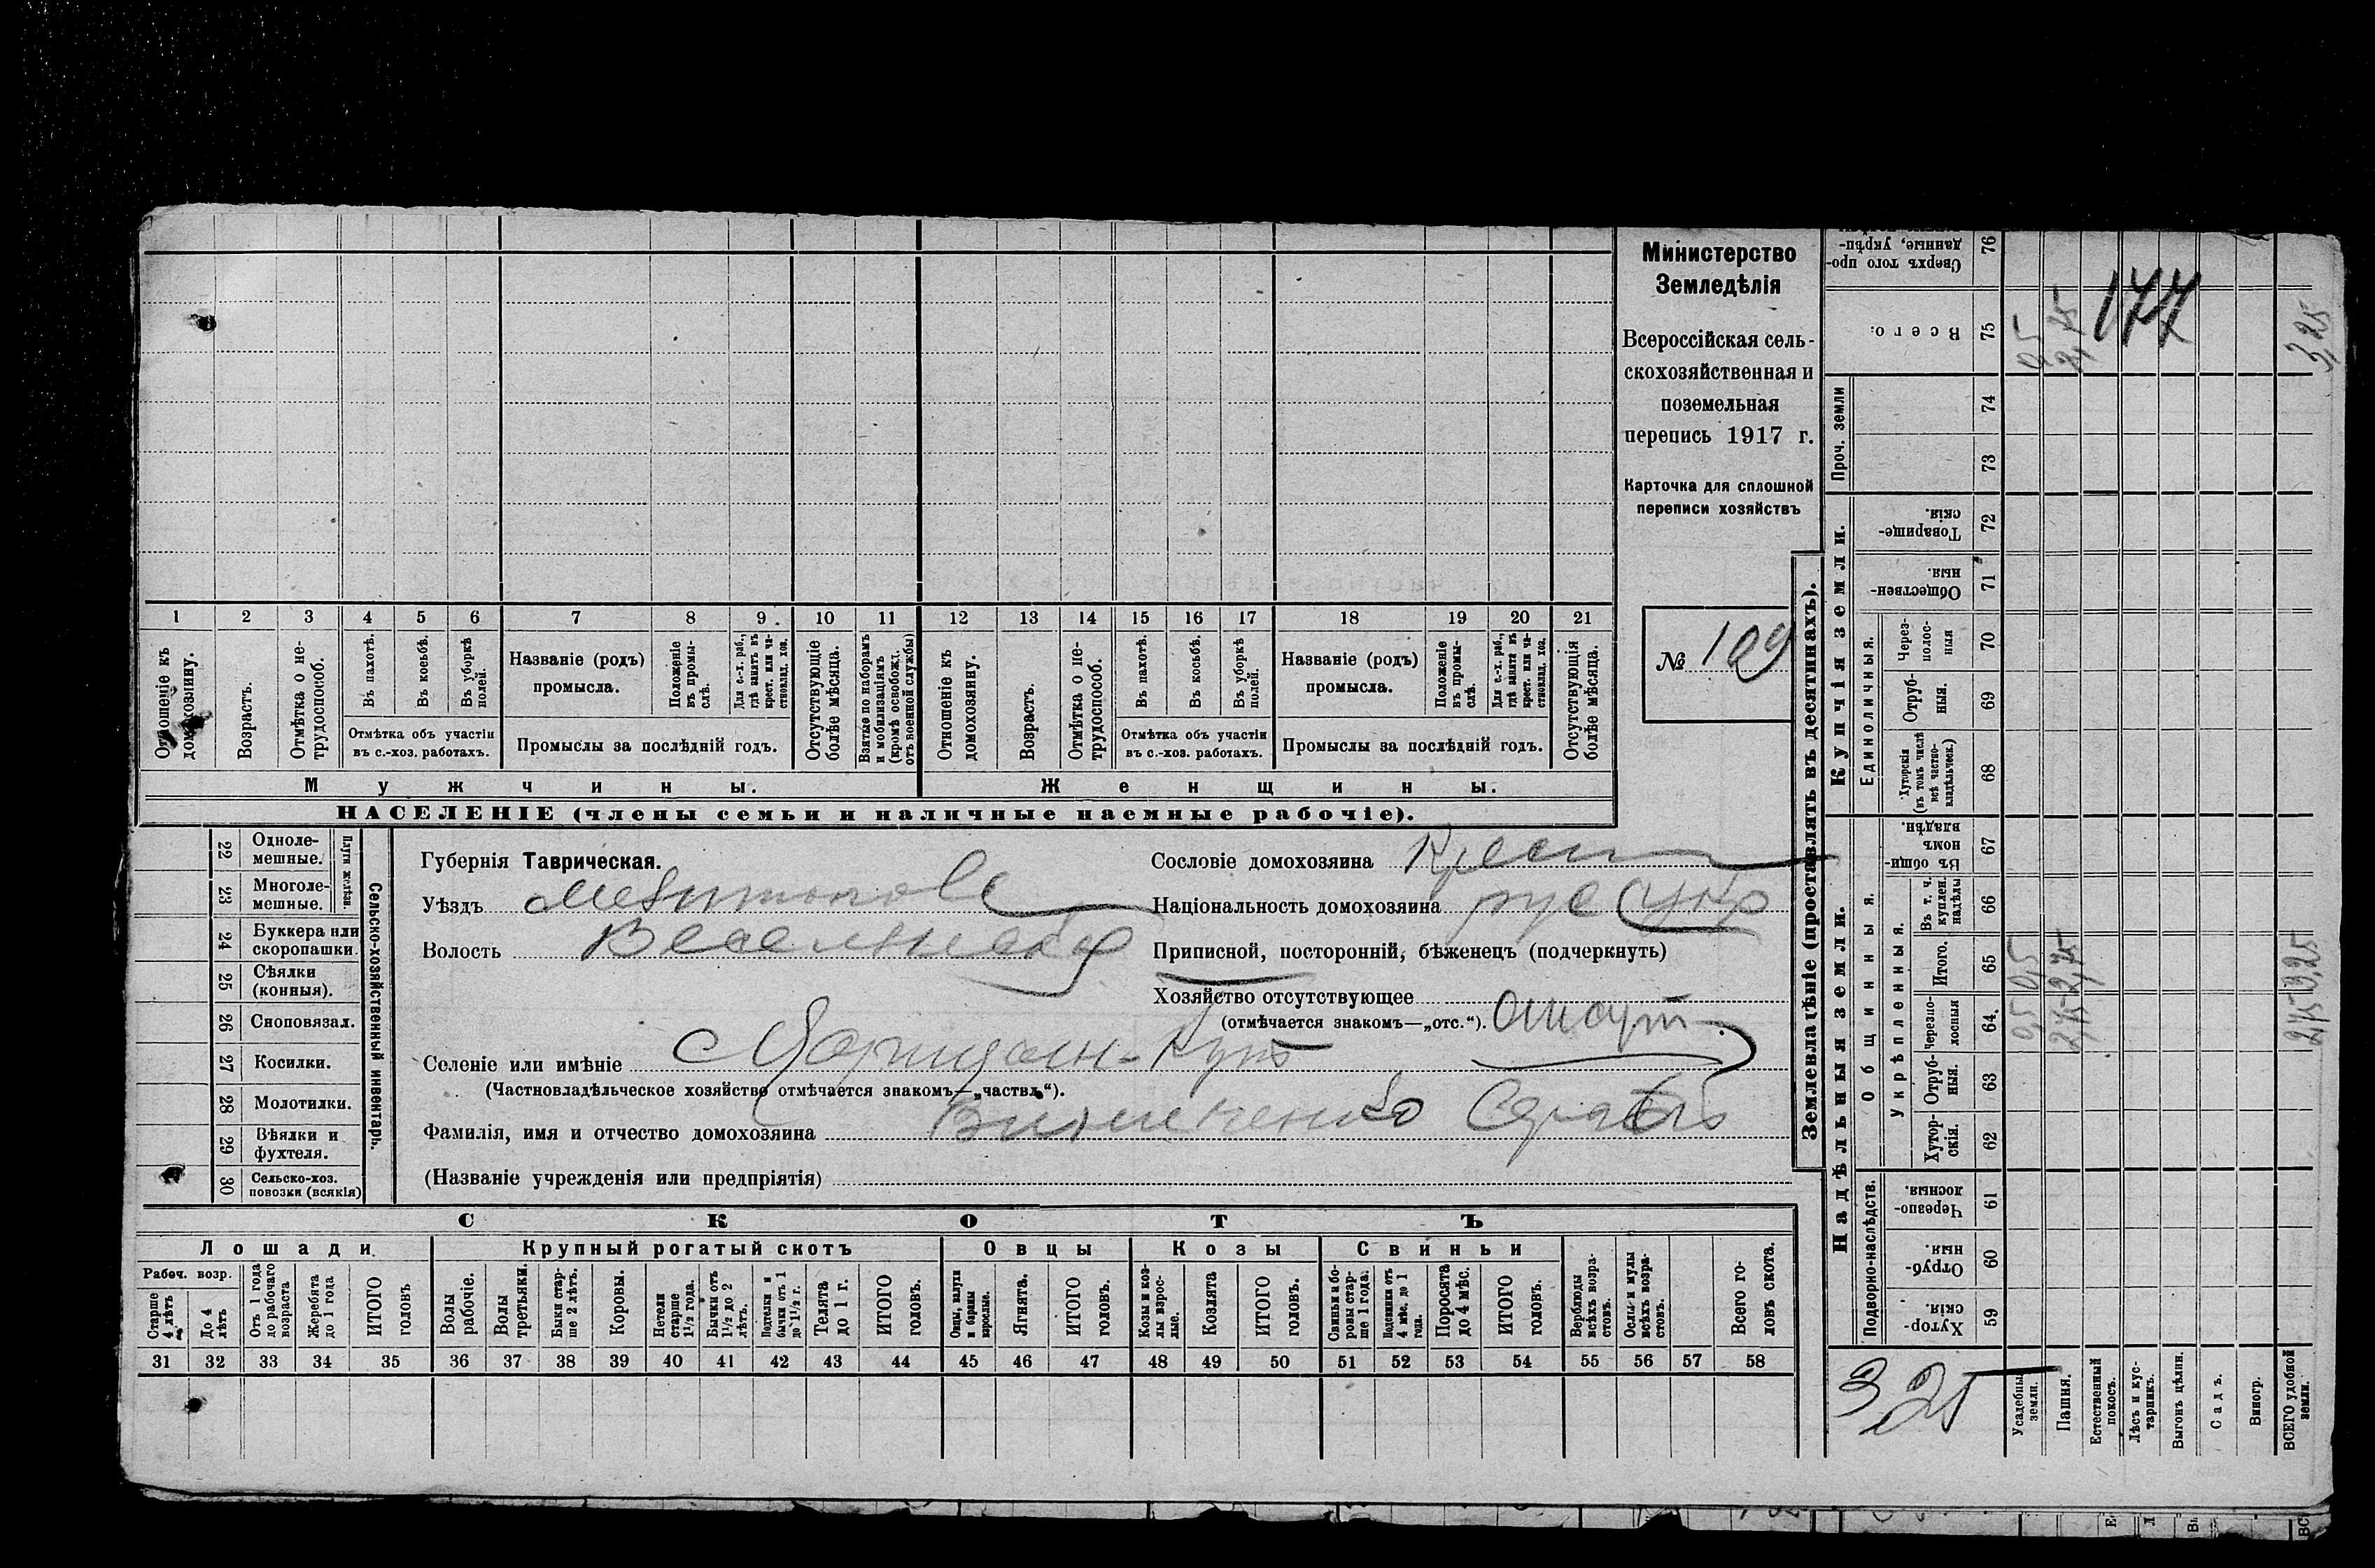 Министерство
Земледѣлія
Всероссійская сель-
скохозяйственная и
поземельная
перепись 1917 г.
Карточка для сплошной
переписи хозяйствъ
№ 109
1 2 3 4 5 6 7 8 9 10 11 12 13 14 15 16 17 18 19 20 21
Отношеніе къ домохозяину.
Возрастъ.
Отмѣтка о не-трудоспособ.
Въ пахотѣ.
Въ косьбѣ.
Въ уборкѣ полей.
Отмѣтка объ участіи
въ с.-хоз. работахъ.
Названіе (родъ)
промысла.
Положеніе въ промы-слѣ.
Для с.-х. раб., гдѣ занятъ въ крест. или ча-стновлад. хоз.
Промыслы за послѣдній годъ.
Отсутствующіе болѣе мѣсяца.
Взятые по наборамъ и мобилизаціямъ (кромѣ освобожд. отъ военной службы)
Отношеніе къ домохозяину.
Возрастъ.
Отмѣтка о не-трудоспособ.
Въ пахотѣ.
Въ косьбѣ.
Въ уборкѣ полей.
Отмѣтка объ участіи
въ с.-хоз. работахъ.
Названіе (родъ)
промысла.
Положеніе въ промы-слѣ.
Для с.-х. раб., гдѣ занята въ крест. или ча-стновлад. хоз.
Промыслы за послѣдній годъ.
Отсутствующія болѣе мѣсяца.
Мужчины. Женщины.
НАСЕЛЕНІЕ (члены семьи и наличные наемные рабочіе).
22 Однолемешные.
23 Многолемешные.
Плуги желѣзн.
24 Буккера или скоропашки.
25 Сѣялки (конныя).
26 Сноповязал.
27 Косилки.
28 Молотилки.
29 Вѣялки и фухтеля.
30 Сельско-хоз. повозки (всякія)
Сельско-хозяйственный инвентарь.
Губернія Таврическая.
Уѣздъ Мелитополь
Волость Веселянская
Селеніе или имѣніе
(Частновладѣльческое хозяйство отмѣчается знакомъ—„частвл.“).
Фамилія, имя и отчество домохозяина
(Названіе учрежденія или предпріятія)
Сословіе домохозяина Крест
Національность домохозяина рус (укр
Приписной, посторонній, бѣженецъ (подчеркнуть)
Хозяйство отсутствующее
(отмѣчается знакомъ—„отс.“). отсут
СКОТЪ
Лошади. Крупный рогатый скотъ Овцы Козы Свиньи
Рабоч. возр.
Старше 4 лѣтъ
До 4 лѣтъ
Отъ 1 года до рабочаго возраста
Жеребята до 1 года
ИТОГО головъ
Волы рабочіе.
Волы третьяки.
Быки стар-ше 2 лѣтъ.
Коровы.
Нетели старше 1½ года.
Бычки отъ 1½ до 2 лѣтъ.
Подтелки и бычки отъ 1 до 1½ г.
Телята до 1 г.
ИТОГО головъ.
Овцы, валухи и бараны взрослые.
Ягнята.
ИТОГО головъ.
Козы и коз-лы взрос-лые.
Козлята
ИТОГО головъ.
Свиньи и бо-ровы стар-ше 1 года.
Подсвинки отъ 4 мѣс. до 1 года.
Поросята до 4 мѣс.
ИТОГО головъ.
Верблюды всѣхъ возра-стовъ.
Ослы и мулы всѣхъ возра-стовъ.
Всего го-ловъ скота.
31 32 33 34 35 36 37 38 39 40 41 42 43 44 45 46 47 48 49 50 51 52 53 54 55 56 57 58
Землевладѣніе (проставлять въ десятинахъ).
Надѣльныя земли. Купчія земли.
Подворно-наслѣдств.
Общинныя.
Укрѣпленныя.
Единоличныя.
Проч. земли
Хутор-скія. 59
Отруб-ныя. 60
Черезпо-лосныя. 61
Хутор-скія. 62
Отруб-ныя. 63
Черезпо-лосныя 64. 0,5 2,75 2,75
Итого. 65 0,5 2,75 3,25
Въ т. ч. куплен. надѣлы 66
Въ общин-номъ владѣн. 67
Хуторскія (въ томъ числѣ всѣ частно-владѣльческ.) 68
Отруб-ныя. 69
Через-полос-ныя 70
Обществен-ныя. 71
Товарище-скія. 72
73
74
Всего. 75 0,5 2,75 3,25
Сверхъ того про-данные, укрѣп- 76
177
3,25
Усадебны земли.
Пашня.
Естественный покосъ.
Лѣсъ и кус-тарникъ.
Выгонъ цѣлин.
Садъ.
Виногр.
ВСЕГО удобной земли.